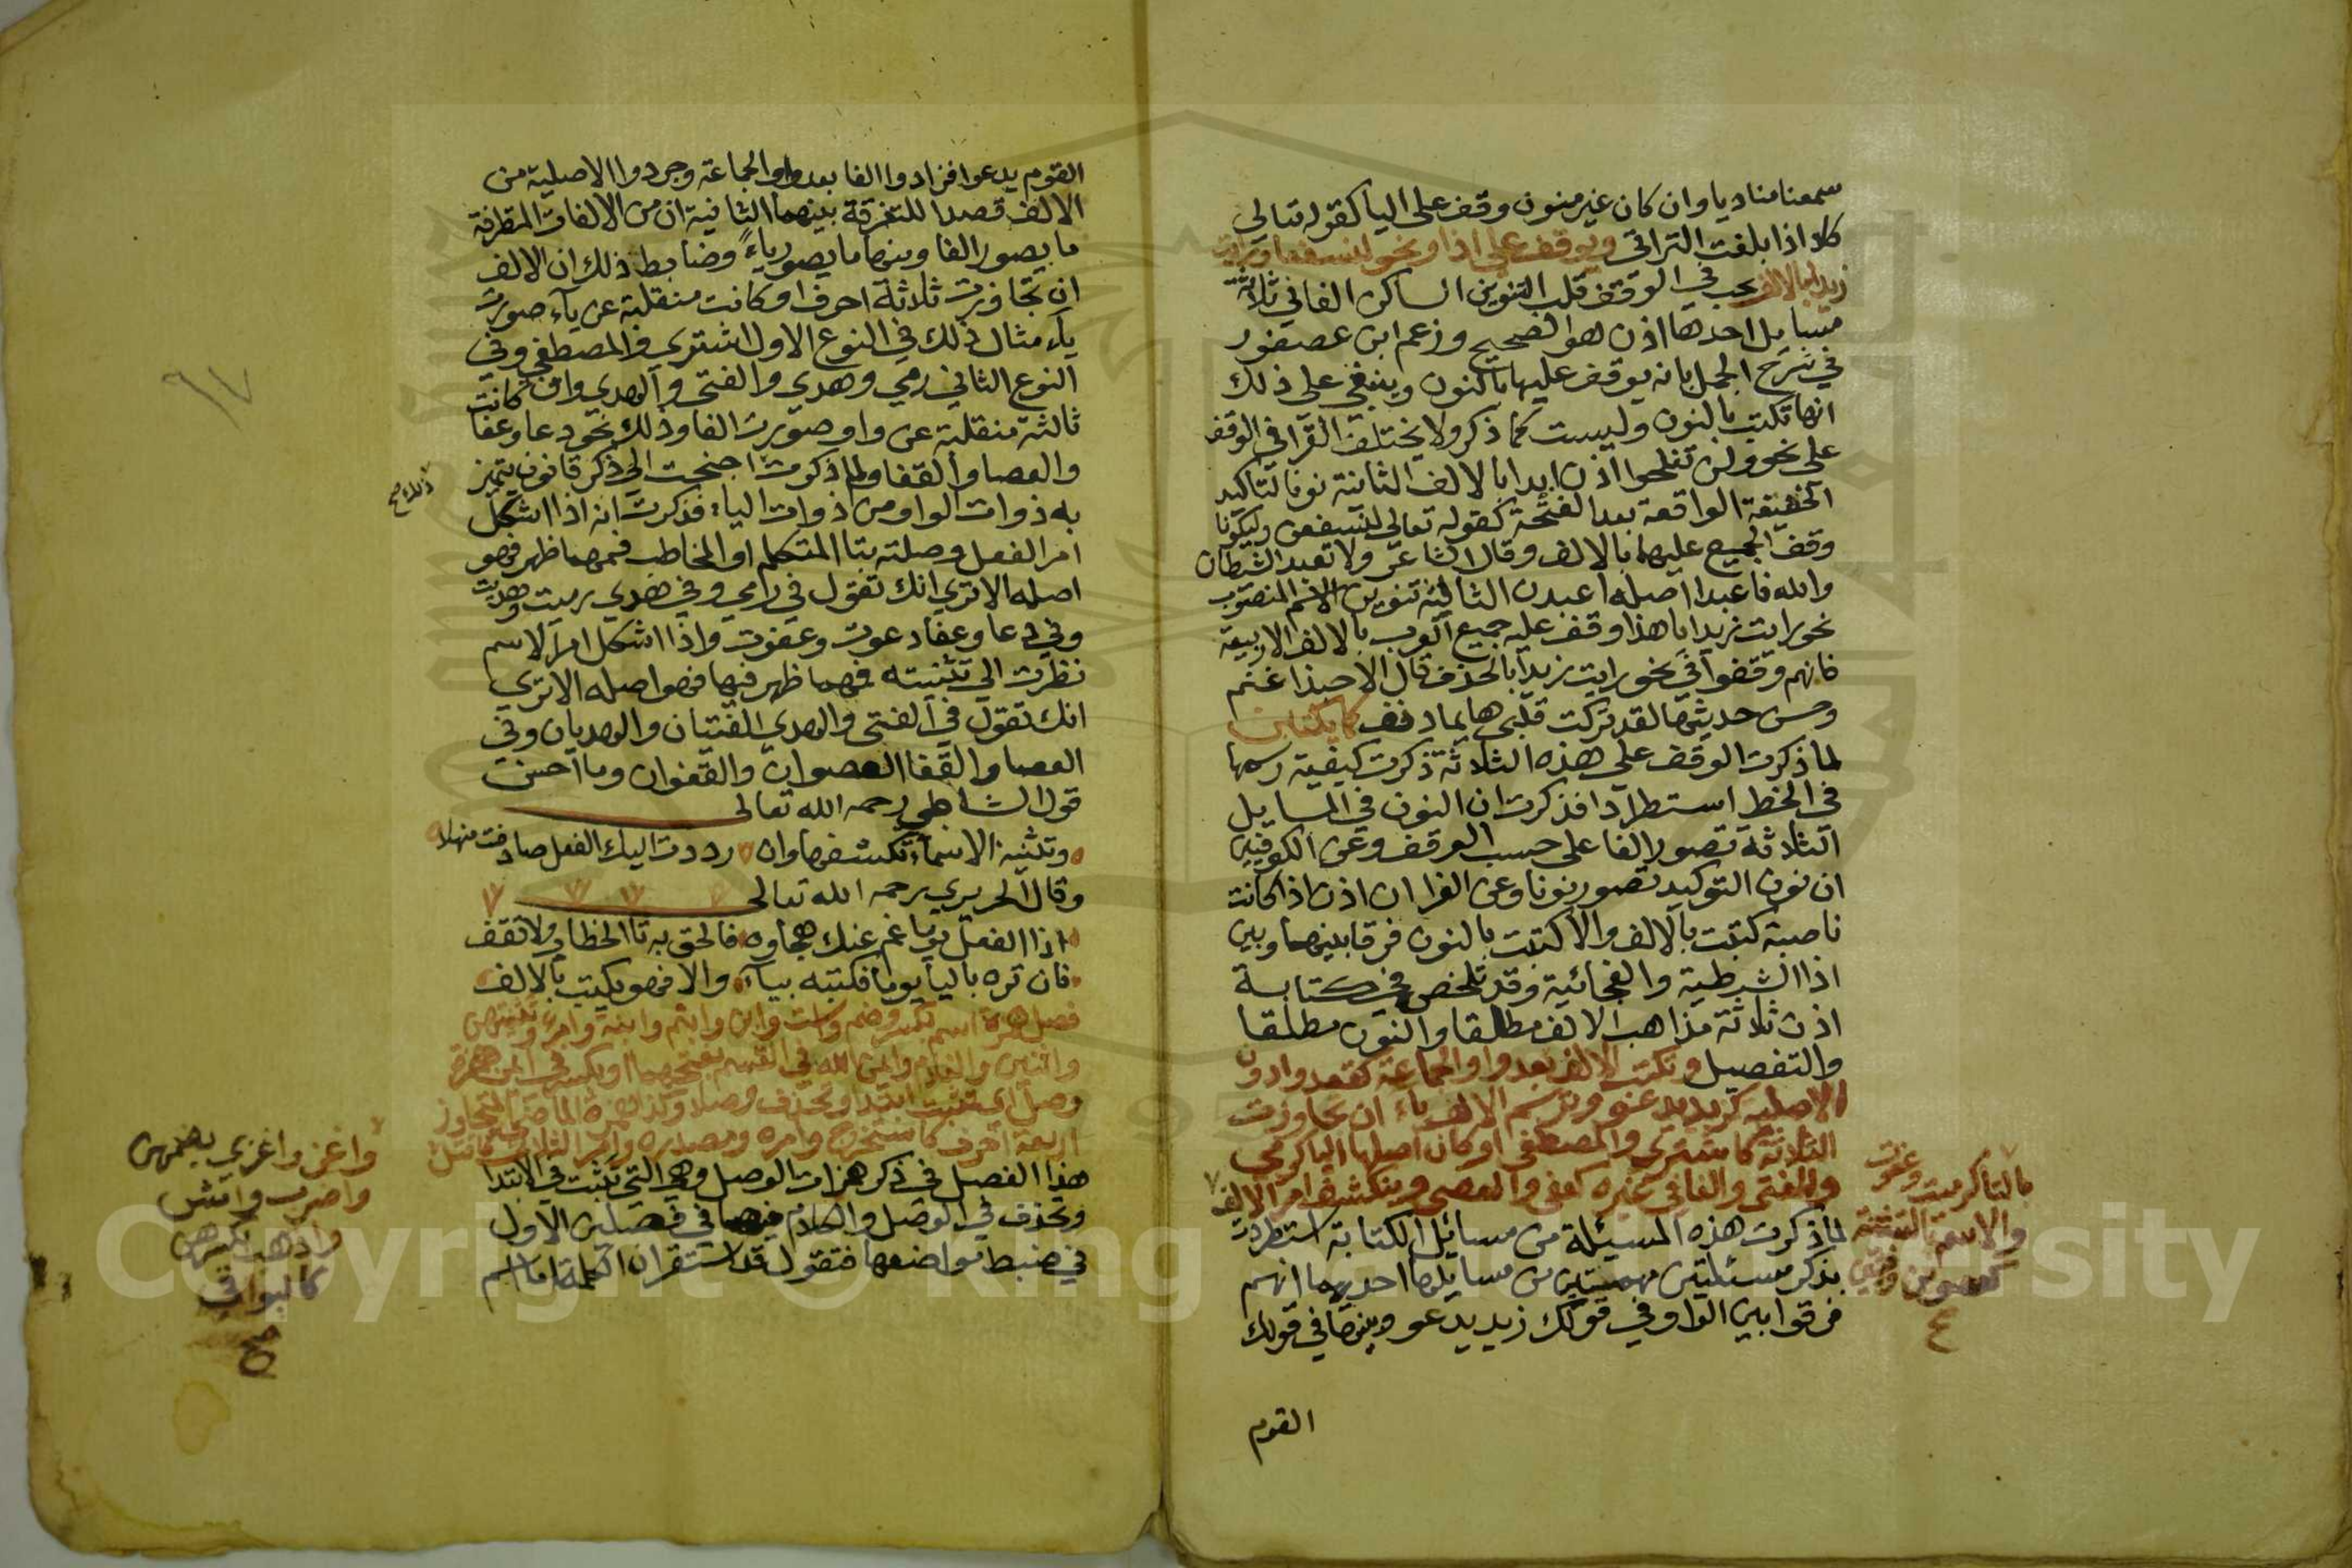 سمعنا مناديا وان كان غير منون وقف على اليا كقوله تعالى
كلا اذا بلغت التراقي ويوقف على اذا ونحو لنسفعا ورايت
زيدا بالالف يجب في الوقف قلب التنوين الساكن الفا في ثلاثة
مسايل احدها اذن هو الصحيح وزعم ابن عصفور
في شرح الجمل بانه يوقف عليها بالنون وينبغي على ذلك
انها تكتب بالنون وليست كما ذكر ولا يختلف القرا في الوقف
على نحو ولن تفلحوا اذن ابدا بالالف الثانية نون التاكيد
الخفيفة الواقعة بعد الفتحة كقوله تعالى لنسفعن وليكونا
وقف الجميع عليهما بالالف وقال الشاعر ولا تعبد الشيطان
والله فاعبدا اصله اعبدن الثالثة تنوين الاسم المنصوب
نحو رايت زيدا هذا وقف عليه جميع العرب بالالف الا ربيعة
فانهم وقفوا في نحو رايت زيدا بالحذف قال الا حبذا غنم
وحسن حديثها لقد تركت قلبي هايما دنف كما يكتبن
لما ذكرت الوقف على هذه الثلاثة ذكرت كيفية رسمها
في الخط استطرادا فذكرت ان النون في المسايل
الثلاثة تصور الفا على حسب الوقف وعن الكوفيين
ان نون التوكيد تصور نونا وعن الفرا ان اذن اذا كانت
ناصبة كتبت بالالف والا كتبت بالنون فرقا بينهما وبين
اذا الشرطية والفجائية وقد تلخص في كتابة
اذن ثلاثة مذاهب الالف مطلقا والنون مطلقا
والتفصيل وتكتب الالف بعد واو الجماعة كقعدوا دون
الاصلية كزيد يدعو وترسم الالف ياء ان تجاوزت
الثلاثة كاشترى والمصطفى او كان اصلها اليا كرمى
والفتى والفا في غيره كعفى والعصى وينكشف امر الالف
بالتا كرميت وعفوت
والاسم بالتثنية
كعصوين وفتيين
لما ذكرت هذه المسئلة من مسائل الكتابة استطردت
بذكر مسئلتين مهمتين من مسايلها احديهما انهم
فرقوا بين الواو في قولك زيد يدعو وبينها في قولك
القوم
القوم يدعوا فزادوا الفا بعد واو الجماعة وجردوا الاصلية من
الالف قصدا للتفرقة بينهما الثانية ان من الالفات المتطرفة
ما يصور الفا ومنها ما يصور ياء وضابط ذلك ان الالف
ان تجاوزت ثلاثة احرف او كانت منقلبة عن ياء صورت
ياء مثال ذلك في النوع الاول اشترى والمصطفى وفي
النوع الثاني رمي وهدي والفتى والهدي وان كانت
ثالثة منقلبة عن واو صورت الفا وذلك نحو دعا وعفا
والعصا والقفا ولما ذكرت ذلك احتجت الى ذكر قانون يتميز
ذلك صح
به ذوات الواو من ذوات الياء فذكرت انه اذا اشكل
امر الفعل وصلته بتا المتكلم او المخاطب فمهما ظهر فهو
اصله الا ترى انك تقول في رامي وفي هدي رميت وهديت
وفي دعا وعفا دعوت وعفوت واذا اشكل امر الاسم
نظرت الى تثنيته فمهما ظهر فيها فهو اصله الا ترى
انك تقول في الفتى والهدي الفتيان والهديان وفي
العصا والقفا العصوان والقفوان وما احسن
قول الشاطبي رحمه الله تعالى
وتثنية الاسماء تكشفها وان رددت اليك الفعل صادفت منهلا
وقال الحريري رحمه الله تعالى
اذا الفعل يوما غم عنك هجاوه فالحق به تا الخطاب ولا تقف
فان تره باليا يوما فكتبه بياء والا فهو يكتب بالالف
فصل همزة اسم بكسر وضم واست وابن وابنم وابنة وامرء وتثنيتهن
واثنين والغلام وايمن الله في القسم بفتحهما او بكسر في ايمن همزة
وصل اي تثبت ابتدا وتحذف وصلا وكذا همزة الماضي المتجاوز
اربعة احرف كاستخرج وامره ومصدره وامر الثلاثي كاقتل
واغز واغزي بضمهن
واضرب وامش
واذهب بكسرهن
كالبواقي
صح
هذا الفصل في ذكر همزات الوصل وهي التي تثبت في الابتدا
وتحذف في الوصل والكلام فيها في فصلين الاول
في ضبط مواضعها فنقول قد استقر ان الكلمة اما اسم